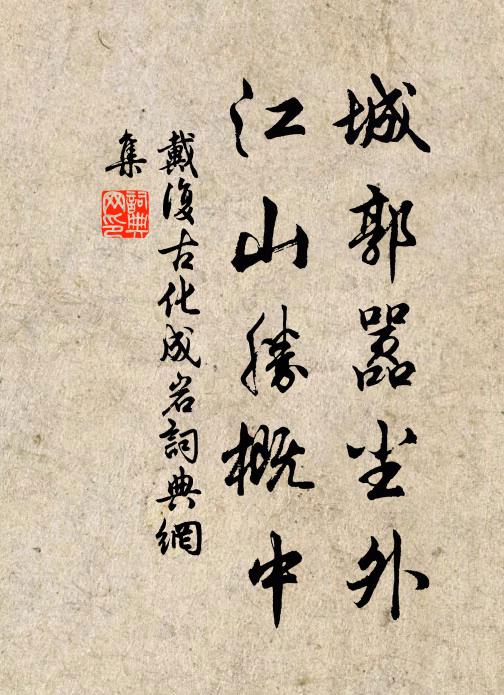 城郭嚣尘外
江山勝概中
戴復古化成岩詞典網
集
詞典網印